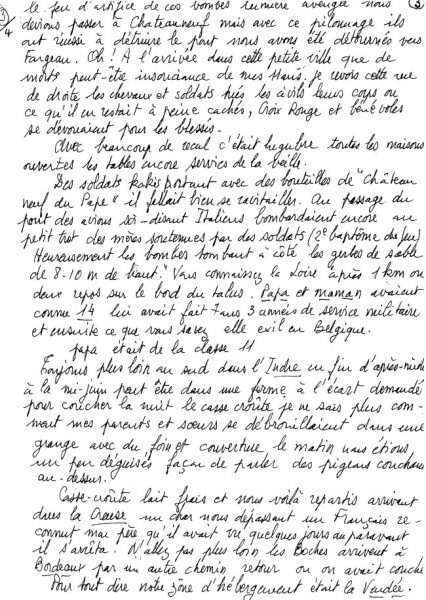 3/4
le feu d'artifice de ces bombes lumière aveugle nous (3)
devions passer à Chateauneuf mais avec ce pilonnage ils
ont réussi à détruire le pont nous avons été détournés vers
Fargeau. Oh! A l'arrivée dans cette petite ville que de
morts peut-être insouciance de mes 14ans. je revois cette rue
de droite les chevaux et soldats tués les civils leurs corps ou
ce qu'il en restait à peine cachés, Croix Rouge et bénévoles
se dévouaient pour les blessés.
Avec beaucoup de recul c'était lugubre toutes les maisons
ouvertes les tables encore servies de la veille.
Des soldats kakis portant avec des bouteilles de "Château
neuf du Pape" il fallait bien se ravitailler. Au passage du
pont des avions soi-disant Italiens bombardaient encore au
petit trot des mères soutenues par des soldats (2e baptême du feu)
Heureusement les bombes tombant à côté les gerbes de sable
de 8-10 m de haut. Vous connaissez la Loire "après 1 km ou
deux repos sur le bord du talus. Papa et maman avaient
connu 14 lui avait fait 7 ans 3 années de service militaire
et ensuite ce que vous savez elle exil en Belgique.
papa était de la classe 11
Toujours plus loin au sud dans l'Indre en fin d'après-midi
à la mi-juin peut être dans une ferme à l'écart demandé
pour coucher la nuit le casse croûte je ne sais plus com-
ment mes parents et soeurs se débrouillaient dans une
grange avec du foin et couverture le matin nous étions
un peu déguisés façon de parler des pigeons couchaient
au-dessus.
Casse-croûte lait frais et nous voilà repartis arrivant
dans la Creuse un char nous dépassant un Français re-
connut mon père qu'il avait vu quelques jours auparavant
il s'arrêta. N'allez pas plus loin les Boches arrivent à
Bordeaux par un autre chemin retour ou on avait couché
Pour tout dire notre zône d'hébergement était la Vendée.